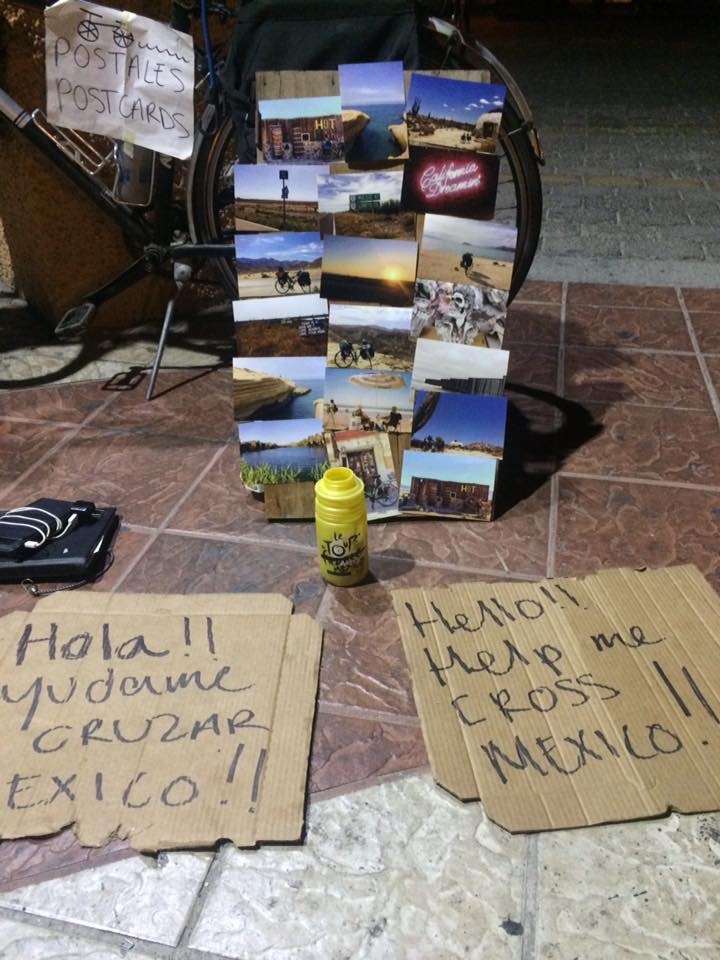 POSTALES
POSTCARDS
HOT
California
Dreamin'
HOT
le
TOUR
Hola!!
yudame
CRUZAR
EXICO!!
Hello!!
Help me
CROSS
MEXICO!!